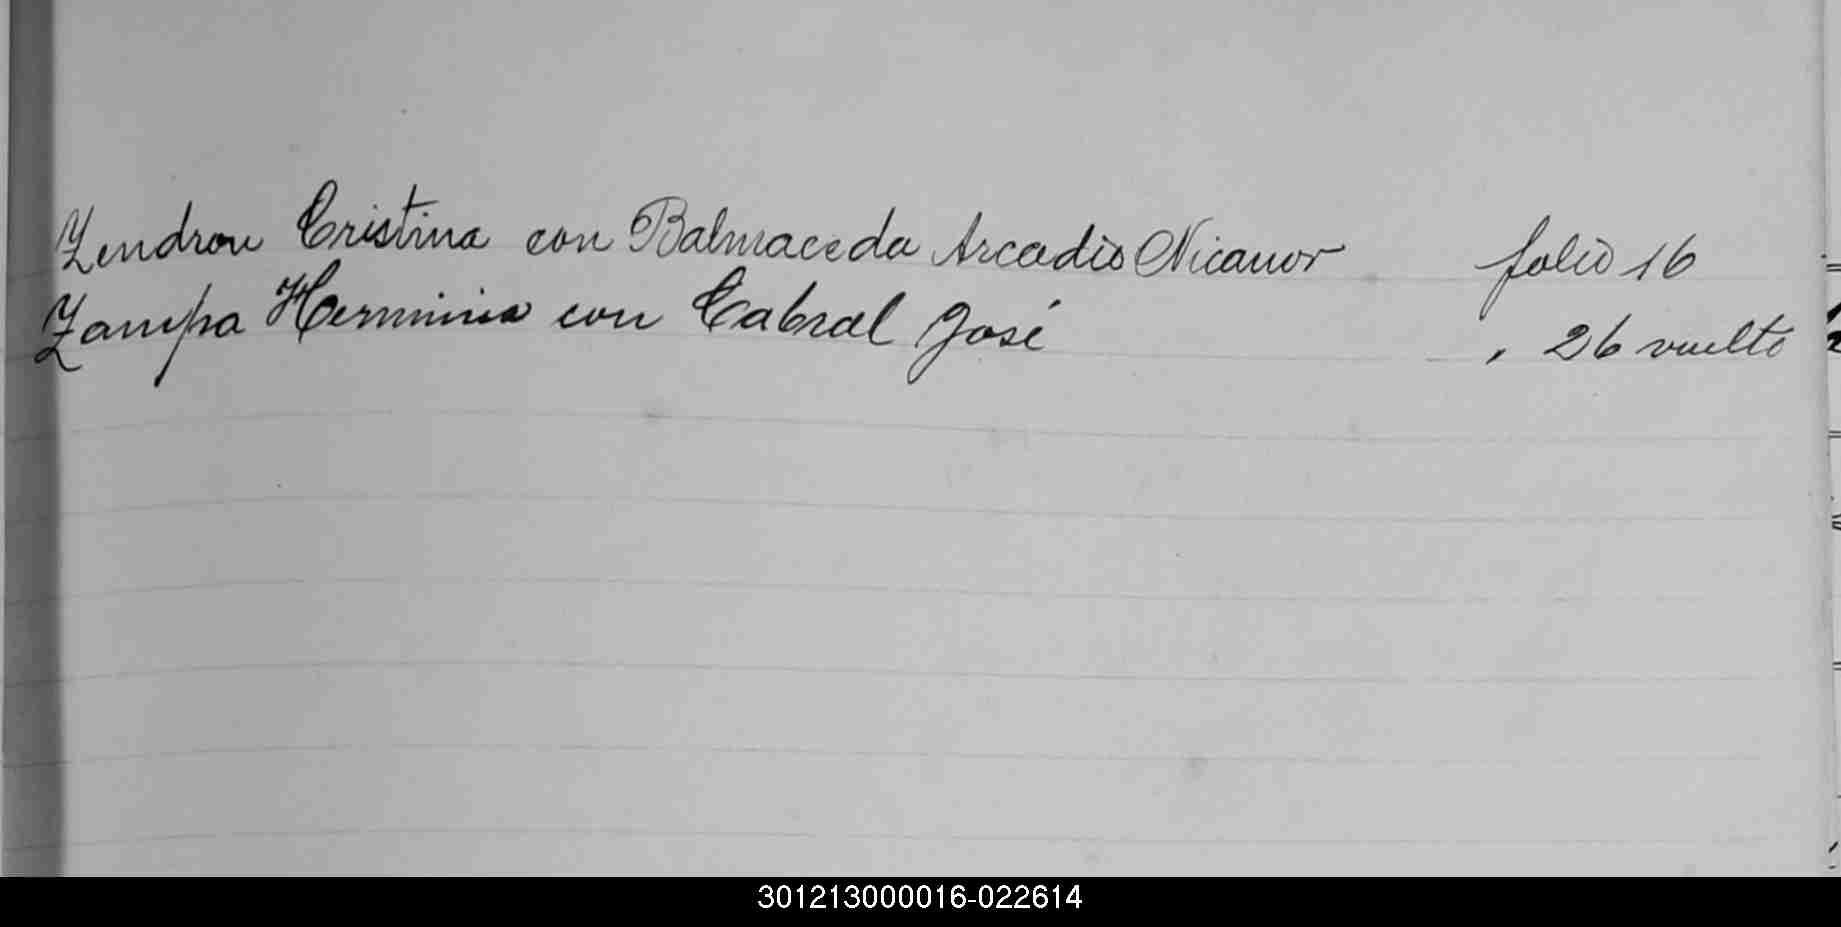 Zendron Cristina con Balmaceda Arcadio Nicanor folio 16
Zampa Herminia con Cabral José , 26 vuelto
301213000016-022614